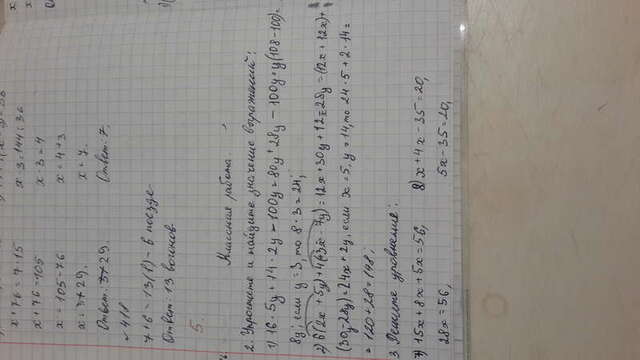 x + 76 = 7 · 15
x + 76 = 105
x = 105 - 76
x = 29.
Ответ: 29.
x - 3 = 144 : 36
x - 3 = 4
x = 4 + 3
x = 7.
Ответ: 7.
№ 411
7 + 6 - 13 (в) - в поезде
Ответ: 13 вагонов.
5.
Классная работа.
2. Упростите и найдите значение выражений:
1) 16 · 5y + 14 · 2y - 100y = 80y + 28y - 100y = y(108 - 100) =
8y; если y = 3, то 8 · 3 = 24;
2) 6(2x + 5y) + 4(3x - 7y) = 12x + 30y + 12x - 28y = (12x + 12x) +
(30y - 28y) = 24x + 2y, если x = 5, y = 14, то 24 · 5 + 2 · 14 =
= 120 + 28 = 148;
3. Решите уравнения:
7) 15x + 8x + 5x = 56,
28x = 56,
8) x + 4x - 35 = 20,
5x - 35 = 20,